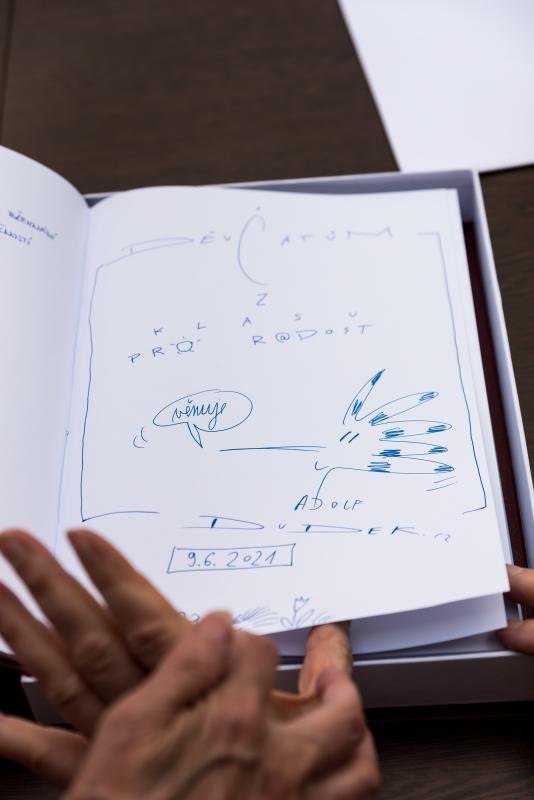 DĚVČATŮM
Z
KLASŮ
PRO R@DOST
věnuje
ADOLF
DUDEK
9.6. 2021